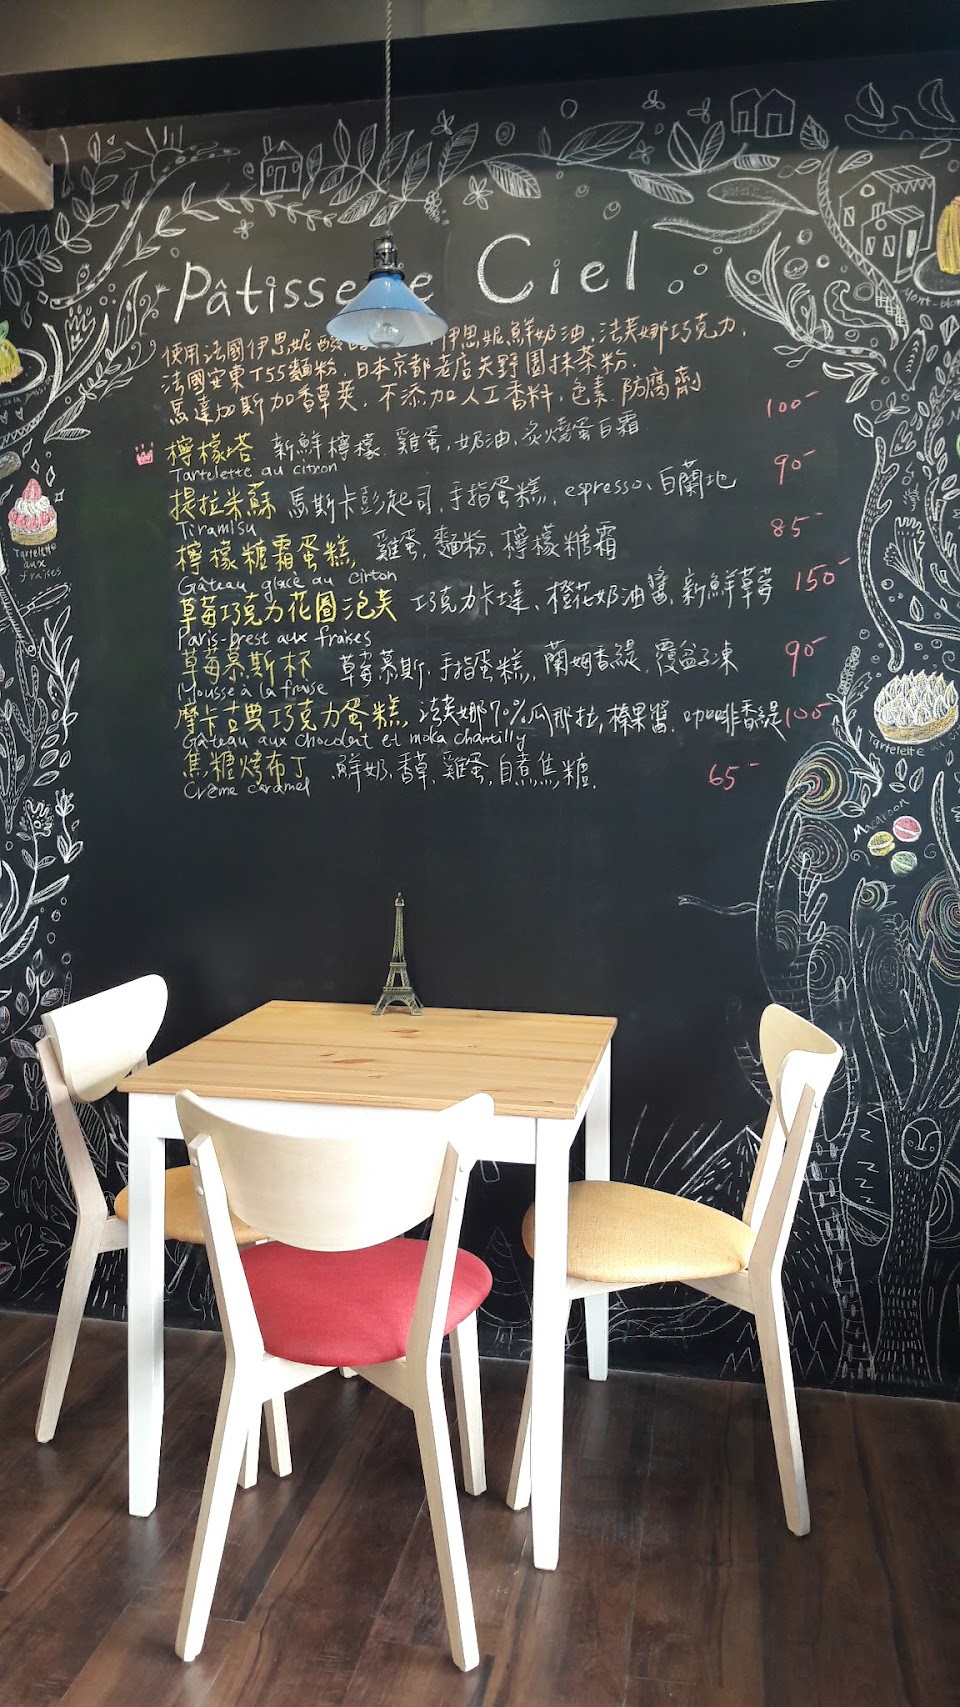 Pâtisserie Ciel
使用法國伊思妮醱酵 伊思妮鮮奶油、法芙娜巧克力,
法國安東T55麵粉, 日本京都老店矢野園抹茶粉,
馬達加斯加香草莢, 不添加人工香料, 色素 防腐劑
檸檬塔 新鮮檸檬 雞蛋, 奶油, 炙燒蛋白霜 100-
Tartelette au citron
提拉米蘇 馬斯卡彭起司, 手指蛋糕, espresso、白蘭地 90-
Tiramisu
檸檬糖霜蛋糕, 雞蛋, 麵粉, 檸檬糖霜 85-
Gâteau glacé au cirton
草莓巧克力花圈泡芙 巧克力卡士達、橙花奶油醬、新鮮草莓 150-
Paris-brest aux fraises
草莓慕斯杯 草莓慕斯, 手指蛋糕, 蘭姆香緹, 覆盆子凍 90-
Mousse à la fraise
摩卡古典巧克力蛋糕, 法芙娜70%瓜那拉, 榛果醬, 咖啡香緹 100-
Gâteau aux chocolat et moka chantilly
焦糖烤布丁 鮮奶, 香草, 雞蛋, 自煮焦糖, 65-
Crème caramel
Tartelette
aux
fraises
Mont-blanc
Tartelette au
Macaroon